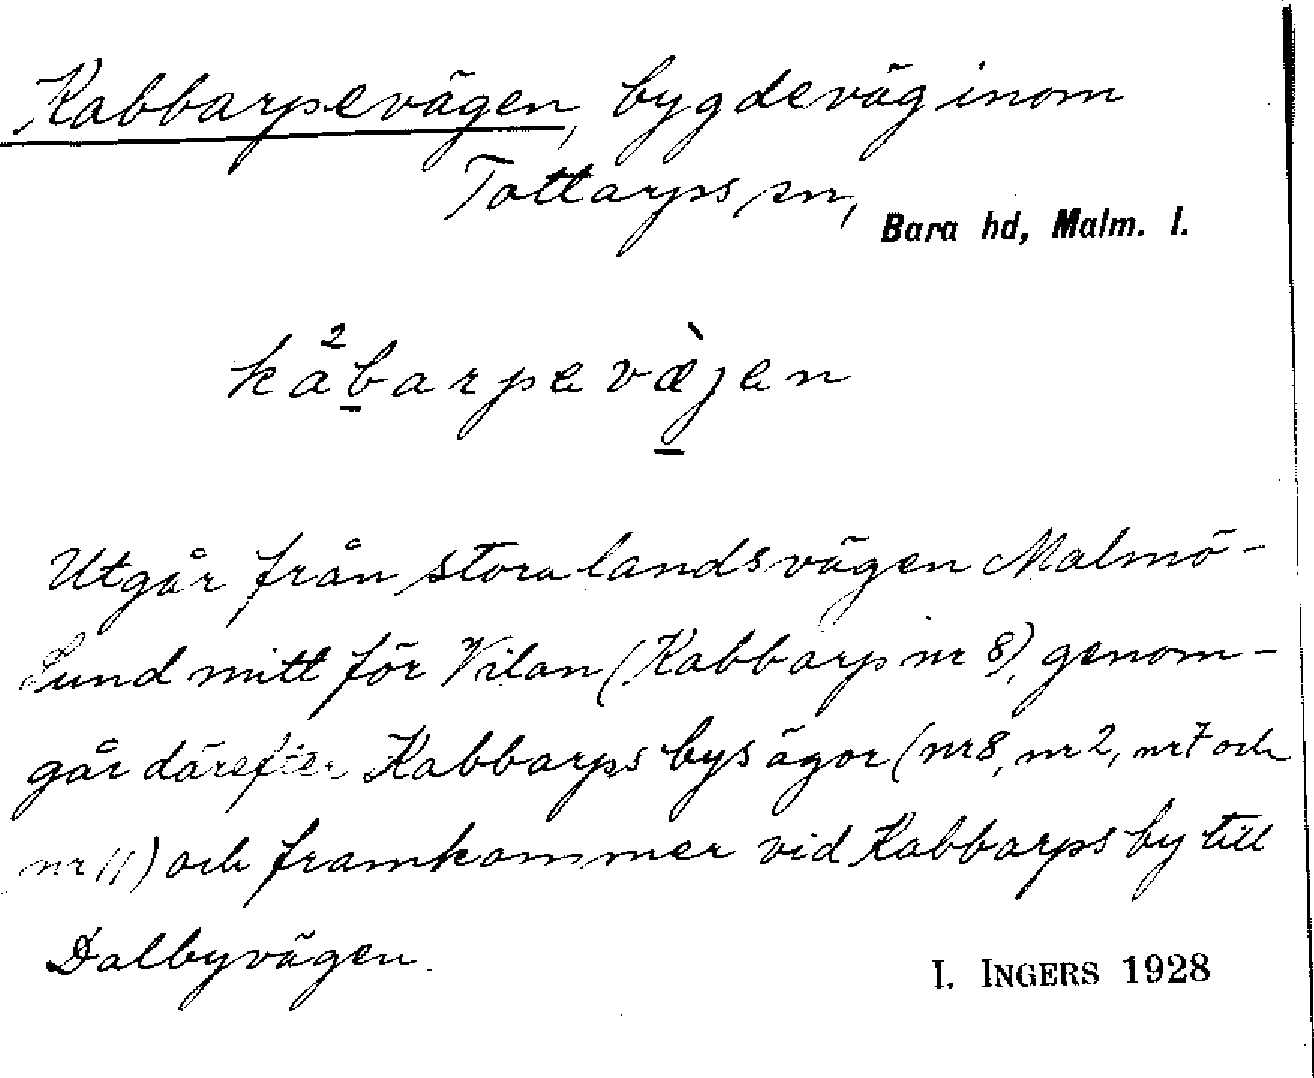 Kabbarpevägen, bygdeväg inom
Tottarps sn, Bara hd, Malm. l.
kå²barpevæ̀jen
Utgår från stora landsvägen Malmö-
Lund mitt för Vilan (Kabbarp nr 8), genom-
går därefter Kabbarps bys ägor (nr 8, nr 2, nr 7 och
nr 11) och framkommer vid Kabbarps by till
Dalbyvägen.
I. INGERS 1928